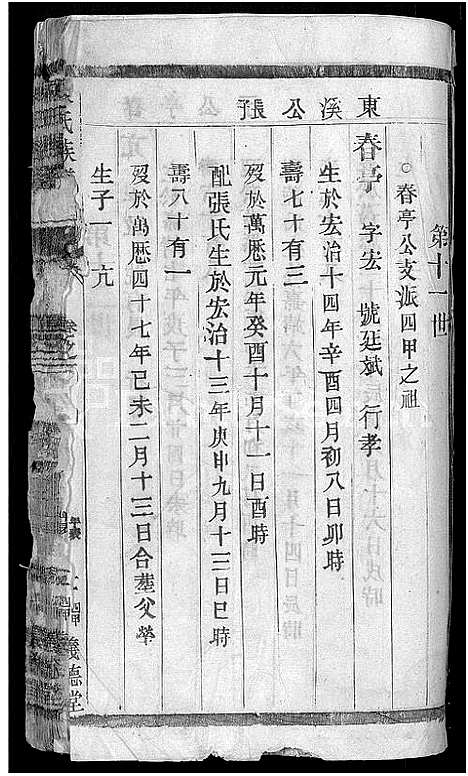 東溪公張孜
第十一世
○春亭公支派四甲之祖
春亭 字宏 號廷斌 行孝
生於宏治十四年辛酉四月初八日卯時
壽七十有三
歿於萬歷元年癸酉十月十一日酉時
配張氏生於宏治十三年庚申九月十三日巳時
壽八十有一
歿於萬歷四十七年己未二月十三日合塟父塋
生子一 亢
氏族
年表
義德堂